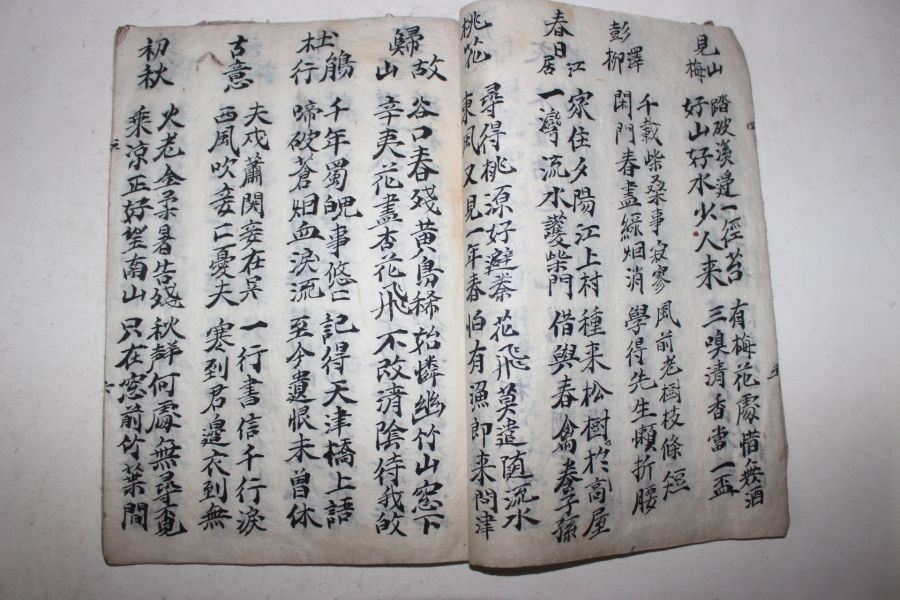 見山梅
踏破溪邊一徑苔
好山好水少人来
有梅花處惜無酒
三嗅清香當一盃
彭澤柳
千載柴桑事寂寥
閑門春盡綠烟消
風前老樹枝條短
學得先生懶折腰
春日江居
家住夕陽江上村
一灣流水護柴門
種来松樹於高屋
借與春禽養子孫
桃花
尋得桃源好避秦
東風又見一年春
花飛莫遣随流水
怕有漁郎来問津
歸故山
谷口春殘黃鳥稀
辛夷花盡杏花飛
始憐幽竹山窓下
不改清陰待我故
杜鵑行
千年蜀魄事悠〻
啼破蒼烟血淚流
記得天津橋上語
至今遺恨未曾休
古意
夫戍蕭関妾在吳
西風吹妾〻憂夫
一行書信千行淚
寒到君邊衣到無
初秋
火老金柔暑告殘
乘凉正好望南山
秋聲何處無尋覓
只在窓前竹葉間